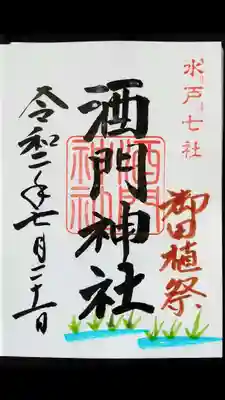 水戸七社
御田植祭
酒門神社
酒門神社
令和二年七月二十一日